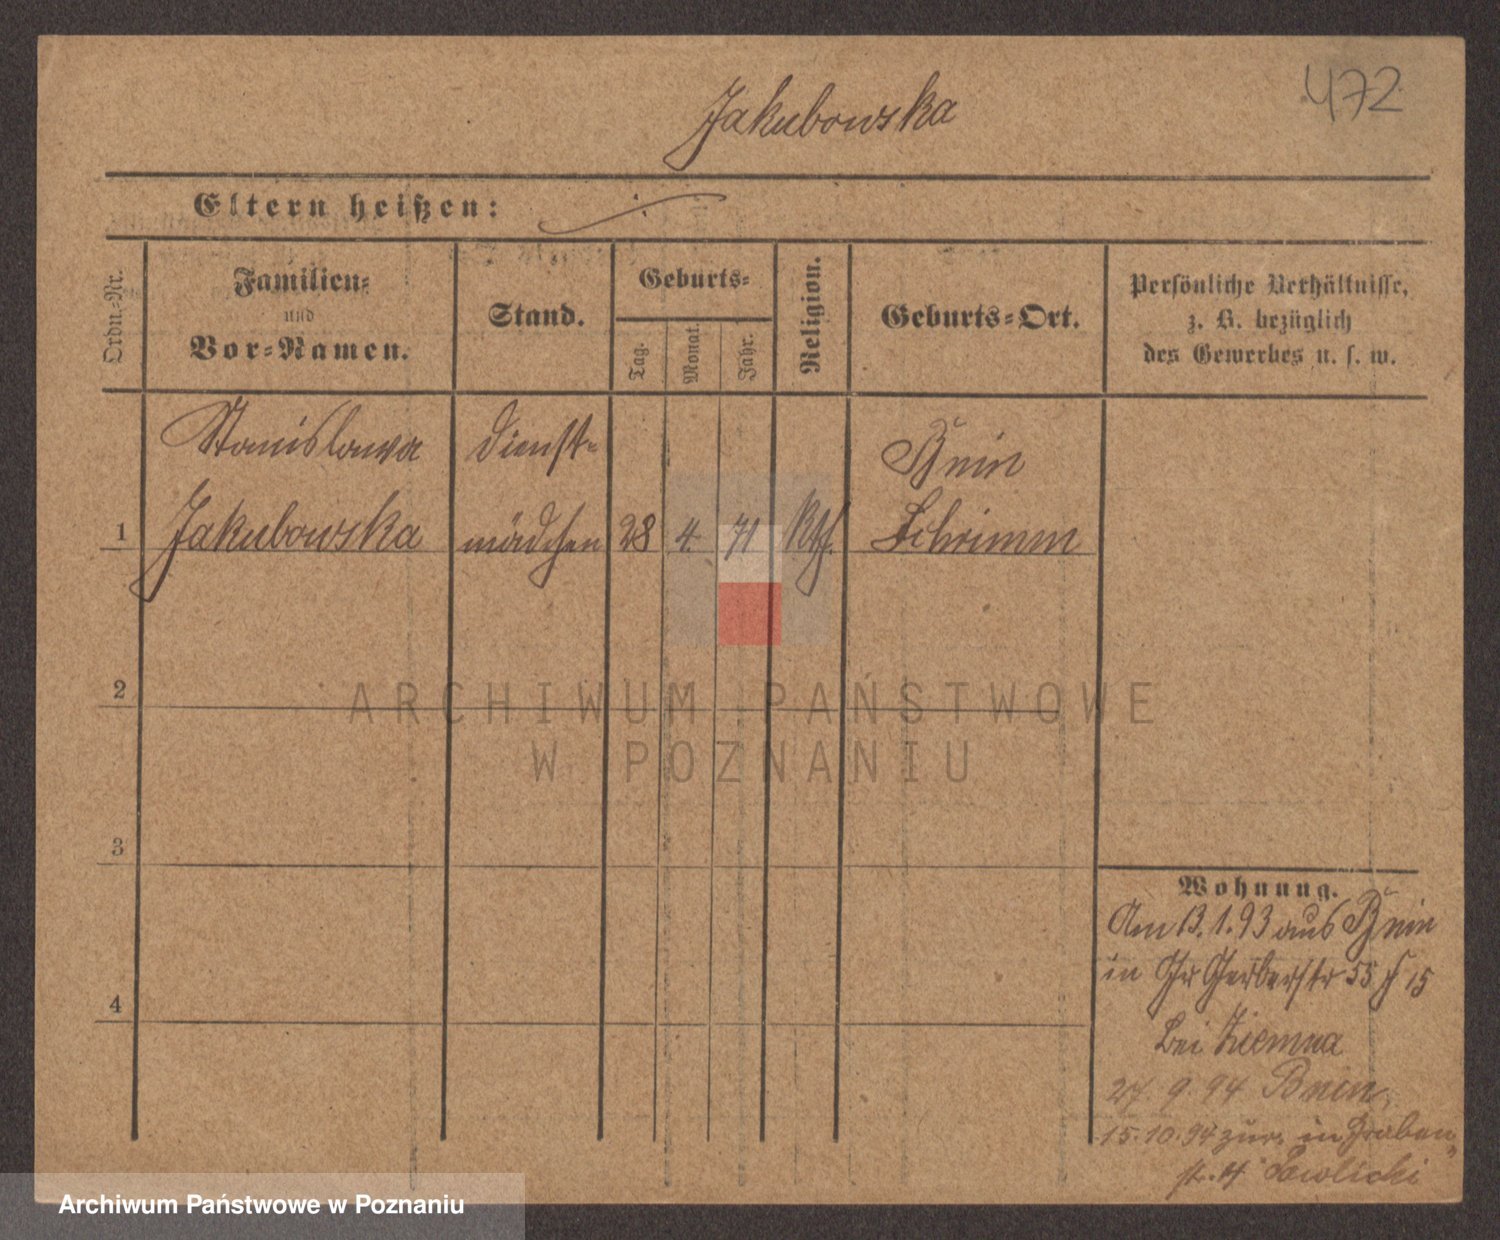 Jakubowska
472
Eltern heißen:
Ordn.-Nr.
Familien-
und
Vor-Namen.
Stand.
Geburts-
Tag.
Monat.
Jahr.
Religion.
Geburts-Ort.
Persönliche Verhältnisse,
z. B. bezüglich
des Gewerbes u. s. w.
Stanislawa
Dienst-
Bnin
1 Jakubowska mädchen 28 4. 71 Kth. Schrimm
2
ARCHIWUM PAŃSTWOWE
W POZNANIU
3
4
Wohnung.
Am 13.1.93 aus Bnin
in Gr Gerberstr 55 15
bei Ziemna
27. 9. 94 Bnin,
15.10.94 zur. in Graben
str. 4
Archiwum Państwowe w Poznaniu